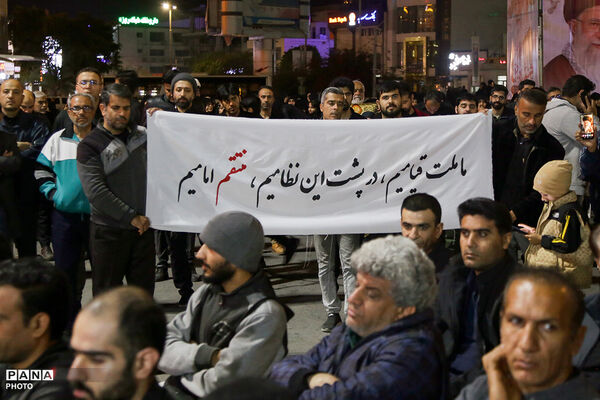 ما ملت قیامیم، در پشت این نظامیم، منتقم امامیم
PANA
PHOTO